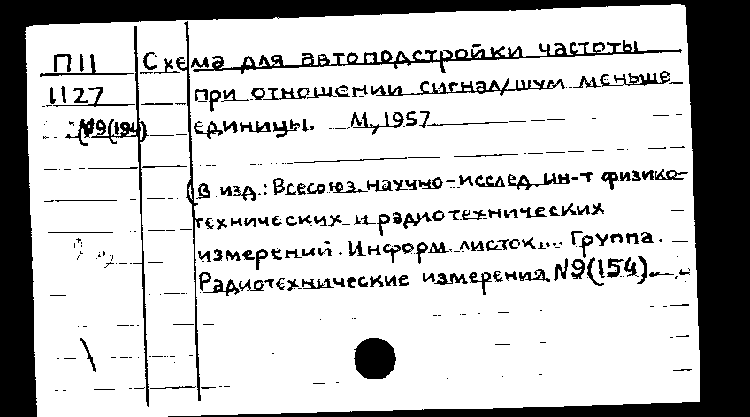 П11 Схема для автоподстройки частоты
1127 при отношении сигнал/шум меньше
№9(194) единицы. М., 1957
(В изд.: Всесоюз. научно-исслед. ин-т физико-
технических и радиотехнических
измерений. Информ. листок... Группа.
Радиотехнические измерения. №9(154).